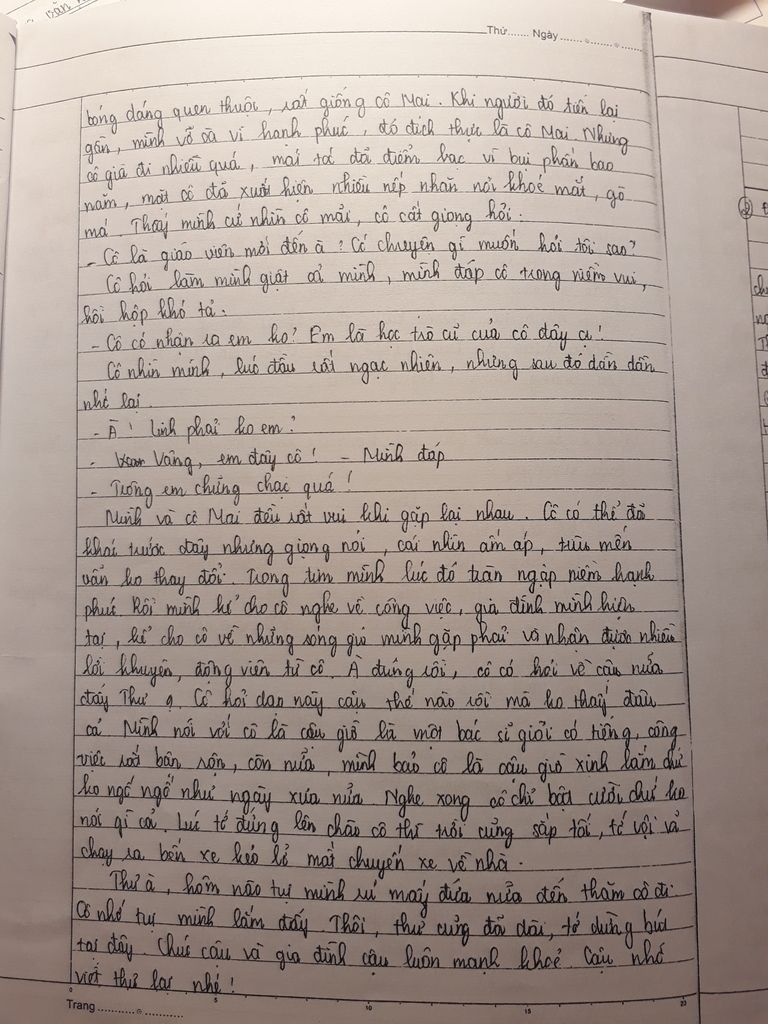 Thứ....... Ngày.......
bóng dáng quen thuộc, rất giống cô Mai. Khi người đó tiến lại
gần, mình vỡ oà vì hạnh phúc, đó đích thực là cô Mai. Nhưng
cô già đi nhiều quá, mái tóc đã điểm bạc vì bụi phấn bao
năm, mặt cô đã xuất hiện nhiều nếp nhăn nơi khoé mắt, gò
má. Thấy mình cứ nhìn cô mãi, cô cất giọng hỏi:
- Cô là giáo viên mới đến à? Có chuyện gì muốn hỏi tôi sao?
Cô hỏi làm mình giật cả mình, mình đáp cô trong niềm vui,
hồi hộp khó tả.
- Cô có nhận ra em ko? Em là học trò cũ của cô đây ạ!
Cô nhìn mình, lúc đầu rất ngạc nhiên, nhưng sau đó dần dần
nhớ lại.
- À! Linh phải ko em?
- Vâng, em đây cô! - Mình đáp
- Trông em chững chạc quá!
Mình và cô Mai đều rất vui khi gặp lại nhau. Cô có thể đã
khác trước đây nhưng giọng nói, cái nhìn ấm áp, trìu mến
vẫn ko thay đổi. Trong tim mình lúc đó tràn ngập niềm hạnh
phúc. Rồi mình kể cho cô nghe về công việc, gia đình mình hiện
tại, kể cho cô về những sóng gió mình gặp phải và nhận được nhiều
lời khuyên, động viên từ cô. À đúng rồi, cô có hỏi về cậu nữa
đấy Thư ạ. Cô hỏi dạo này cậu thế nào rồi mà ko thấy đâu
cả. Mình nói với cô là cậu giờ là một bác sĩ giỏi có tiếng, công
việc rất bận rộn, còn nữa, mình bảo cô là cậu giờ xinh lắm chứ
ko ngố ngố như ngày xưa nữa. Nghe xong cô chỉ bật cười chứ ko
nói gì cả. Lúc tớ đứng lên chào cô thì trời cũng sắp tối, tớ vội vã
chạy ra bến xe kẻo lỡ mất chuyến xe về nhà.
Thư à, hôm nào tụi mình rủ mấy đứa nữa đến thăm cô đi.
Cô nhớ tụi mình lắm đấy. Thôi, thư cũng đã dài, tớ dừng bút
tại đây. Chúc cậu và gia đình cậu luôn mạnh khoẻ. Cậu nhớ
viết thư lại nhé!
Trang...............
0 5 10 15 20